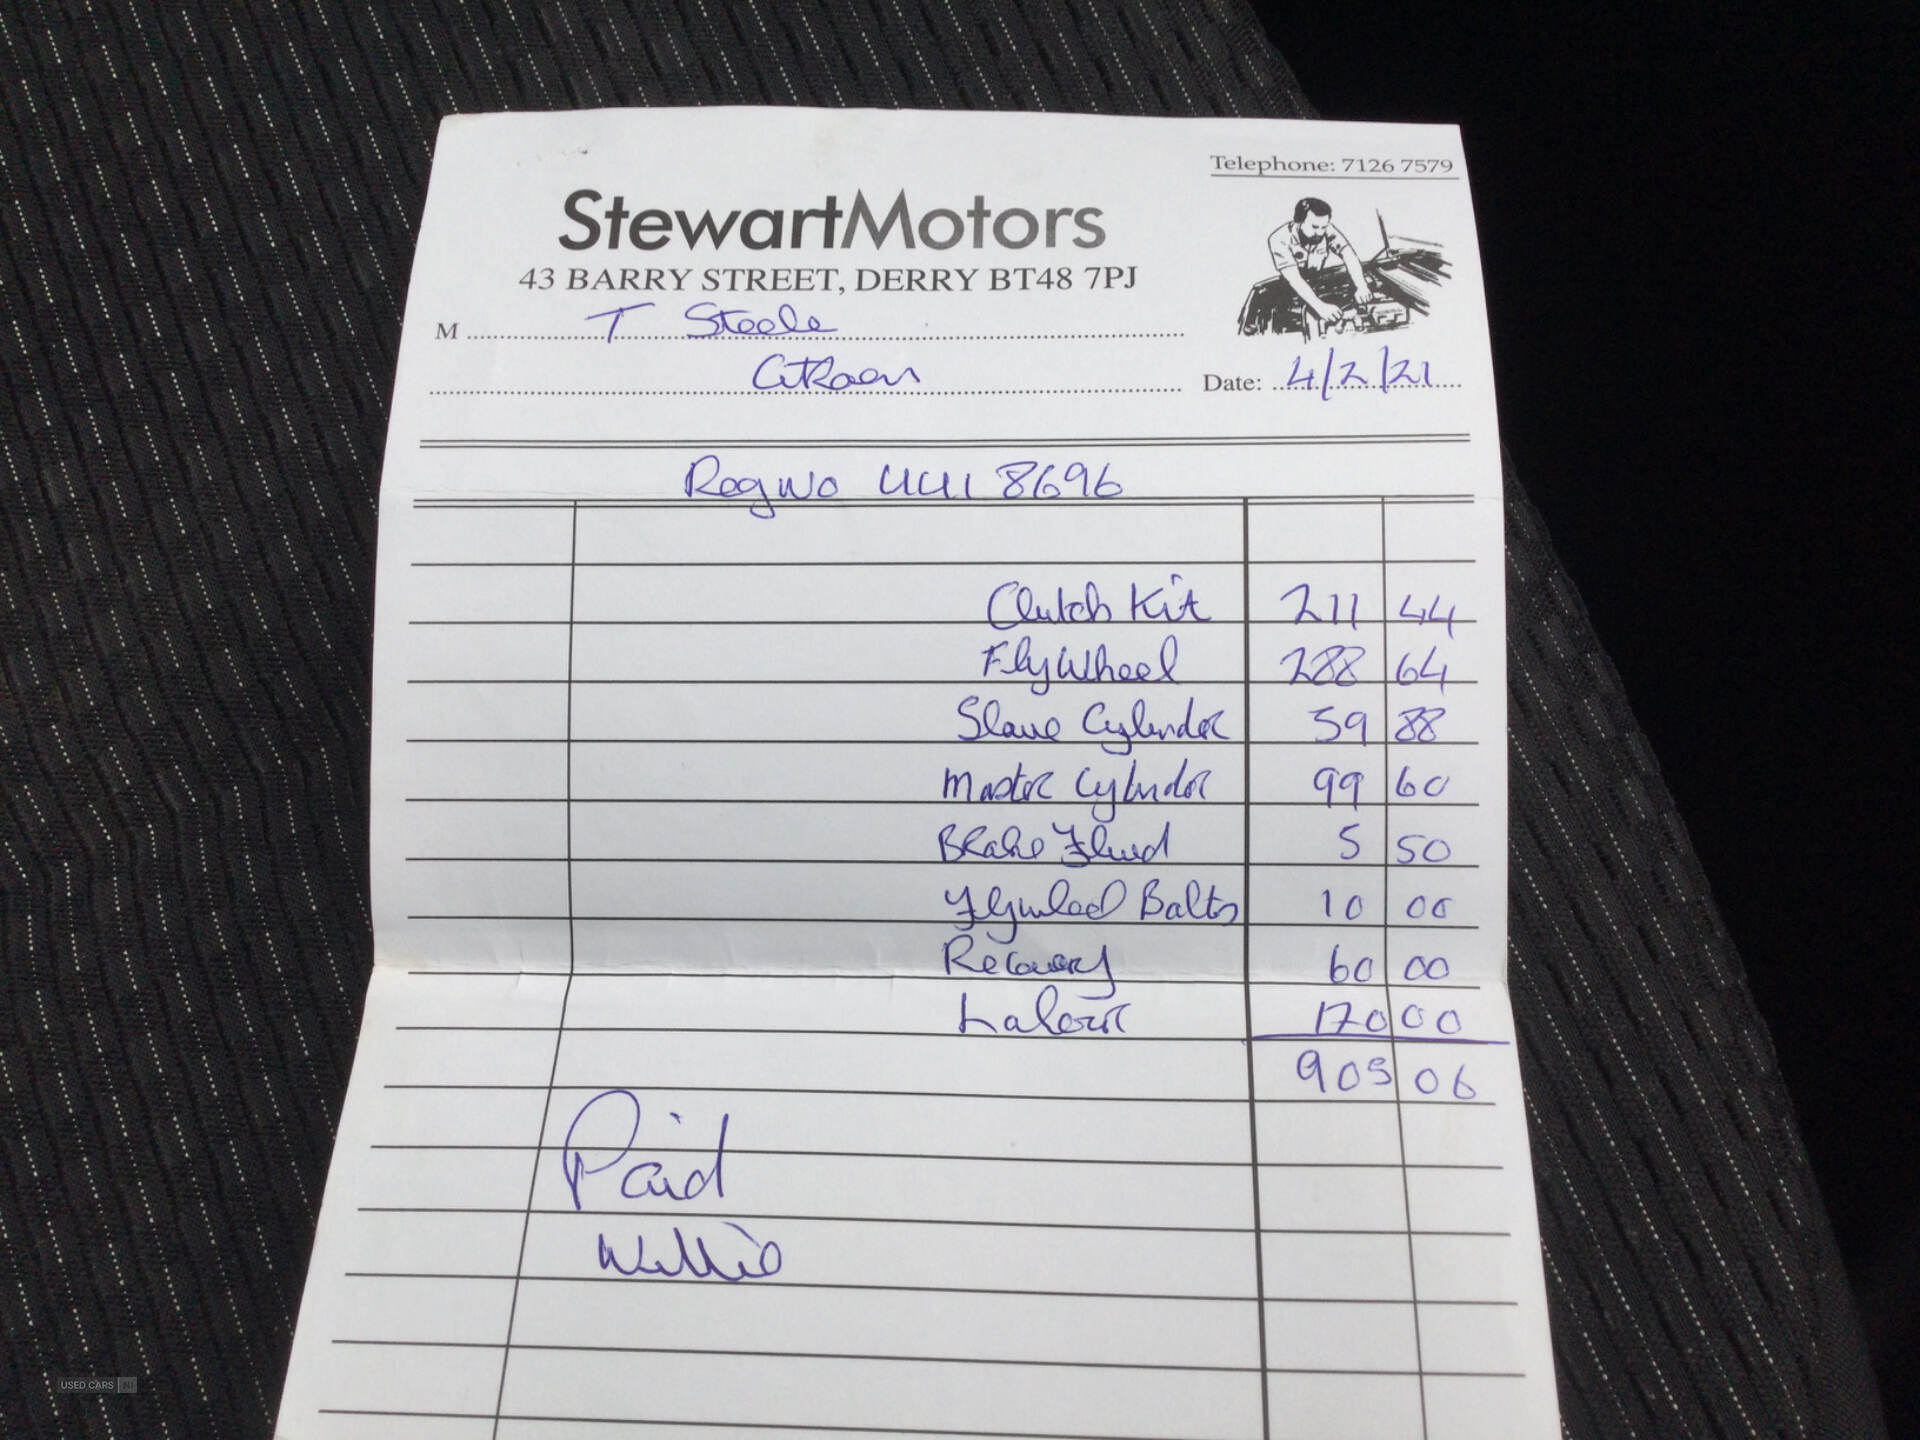 Telephone: 7126 7579
StewartMotors
43 BARRY STREET, DERRY BT48 7PJ
M T Steele
CitRoen Date: 4/2/21
Reg No UUI 8696
Clutch Kit 211 44
FlyWheel 288 64
Slave Cylinder 59 88
Master Cylinder 99 60
Brake Fluid 5 50
Flywheel Bolts 10 00
Recovery 60 00
Labour 170 00
905 06
Paid
Willie
USED CARS NI